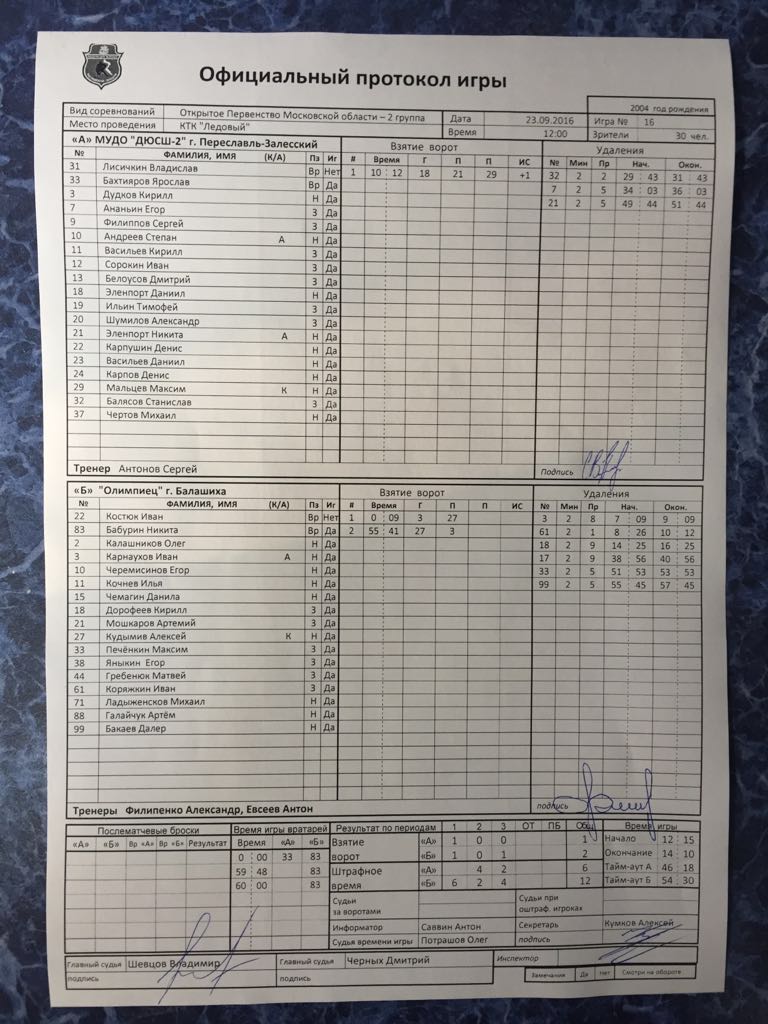 Официальный протокол игры
2004 год рождения
Вид соревнований Открытое Первенство Московской области – 2 группа Дата 23.09.2016 Игра № 16
Место проведения КТК "Ледовый" Время 12:00 Зрители 30 чел.
«А» МУДО "ДЮСШ-2" г. Переславль-Залесский Взятие ворот Удаления
№ ФАМИЛИЯ, ИМЯ (К/А) Пз Иг # Время Г П П ИС № Мин Пр Нач. Окон.
31 Лисичкин Владислав Вр Нет 1 10 : 12 18 21 29 +1 32 2 2 29 : 43 31 : 43
33 Бахтияров Ярослав Вр Да 7 2 5 34 : 03 36 : 03
3 Дудков Кирилл Н Да 21 2 5 49 : 44 51 : 44
7 Ананьин Егор З Да
9 Филиппов Сергей З Да
10 Андреев Степан А Н Да
11 Васильев Кирилл З Да
12 Сорокин Иван З Да
13 Белоусов Дмитрий З Да
18 Эленпорт Даниил Н Да
19 Ильин Тимофей З Да
20 Шумилов Александр З Да
21 Эленпорт Никита А Н Да
22 Карпушин Денис Н Да
23 Васильев Даниил Н Да
24 Карпов Денис Н Да
29 Мальцев Максим К Н Да
32 Балясов Станислав З Да
37 Чертов Михаил Н Да
Тренер Антонов Сергей Подпись
«Б» "Олимпиец" г. Балашиха Взятие ворот Удаления
№ ФАМИЛИЯ, ИМЯ (К/А) Пз Иг # Время Г П П ИС № Мин Пр Нач. Окон.
22 Костюк Иван Вр Нет 1 0 : 09 3 27 3 2 8 7 : 09 9 : 09
83 Бабурин Никита Вр Да 2 55 : 41 27 3 61 2 1 8 : 26 10 : 12
2 Калашников Олег Н Да 18 2 9 14 : 25 16 : 25
3 Карнаухов Иван А Н Да 17 2 9 38 : 56 40 : 56
10 Черемисинов Егор Н Да 33 2 5 51 : 53 53 : 53
11 Кочнев Илья Н Да 99 2 5 55 : 45 57 : 45
15 Чемагин Данила Н Да
18 Дорофеев Кирилл З Да
21 Мошкаров Артемий З Да
27 Кудымив Алексей К Н Да
33 Печёнкин Максим З Да
38 Яныкин Егор З Да
44 Гребенюк Матвей З Да
61 Коряжкин Иван З Да
71 Ладыженсков Михаил Н Да
88 Галайчук Артём Н Да
99 Бакаев Далер Н Да
Тренеры Филипенко Александр, Евсеев Антон подпись
Послематчевые броски Время игры вратарей Результат по периодам 1 2 3 ОТ ПБ Общ Время игры
«А» «Б» Вр «А» Вр «Б» Результат Время «А» «Б» Взятие ворот «А» 1 0 0 1 Начало 12 : 15
0 : 00 33 83 «Б» 1 0 1 2 Окончание 14 : 10
59 : 48 83 Штрафное время «А» 4 2 6 Тайм-аут А 46 : 18
60 : 00 83 «Б» 6 2 4 12 Тайм-аут Б 54 : 30
Судьи за воротами Судьи при оштраф. игроках
Информатор Саввин Антон Секретарь Кумков Алексей
Судья времени игры Потрашов Олег подпись
Главный судья Шевцов Владимир Главный судья Черных Дмитрий Инспектор
подпись подпись Замечания Да Нет Смотри на обороте